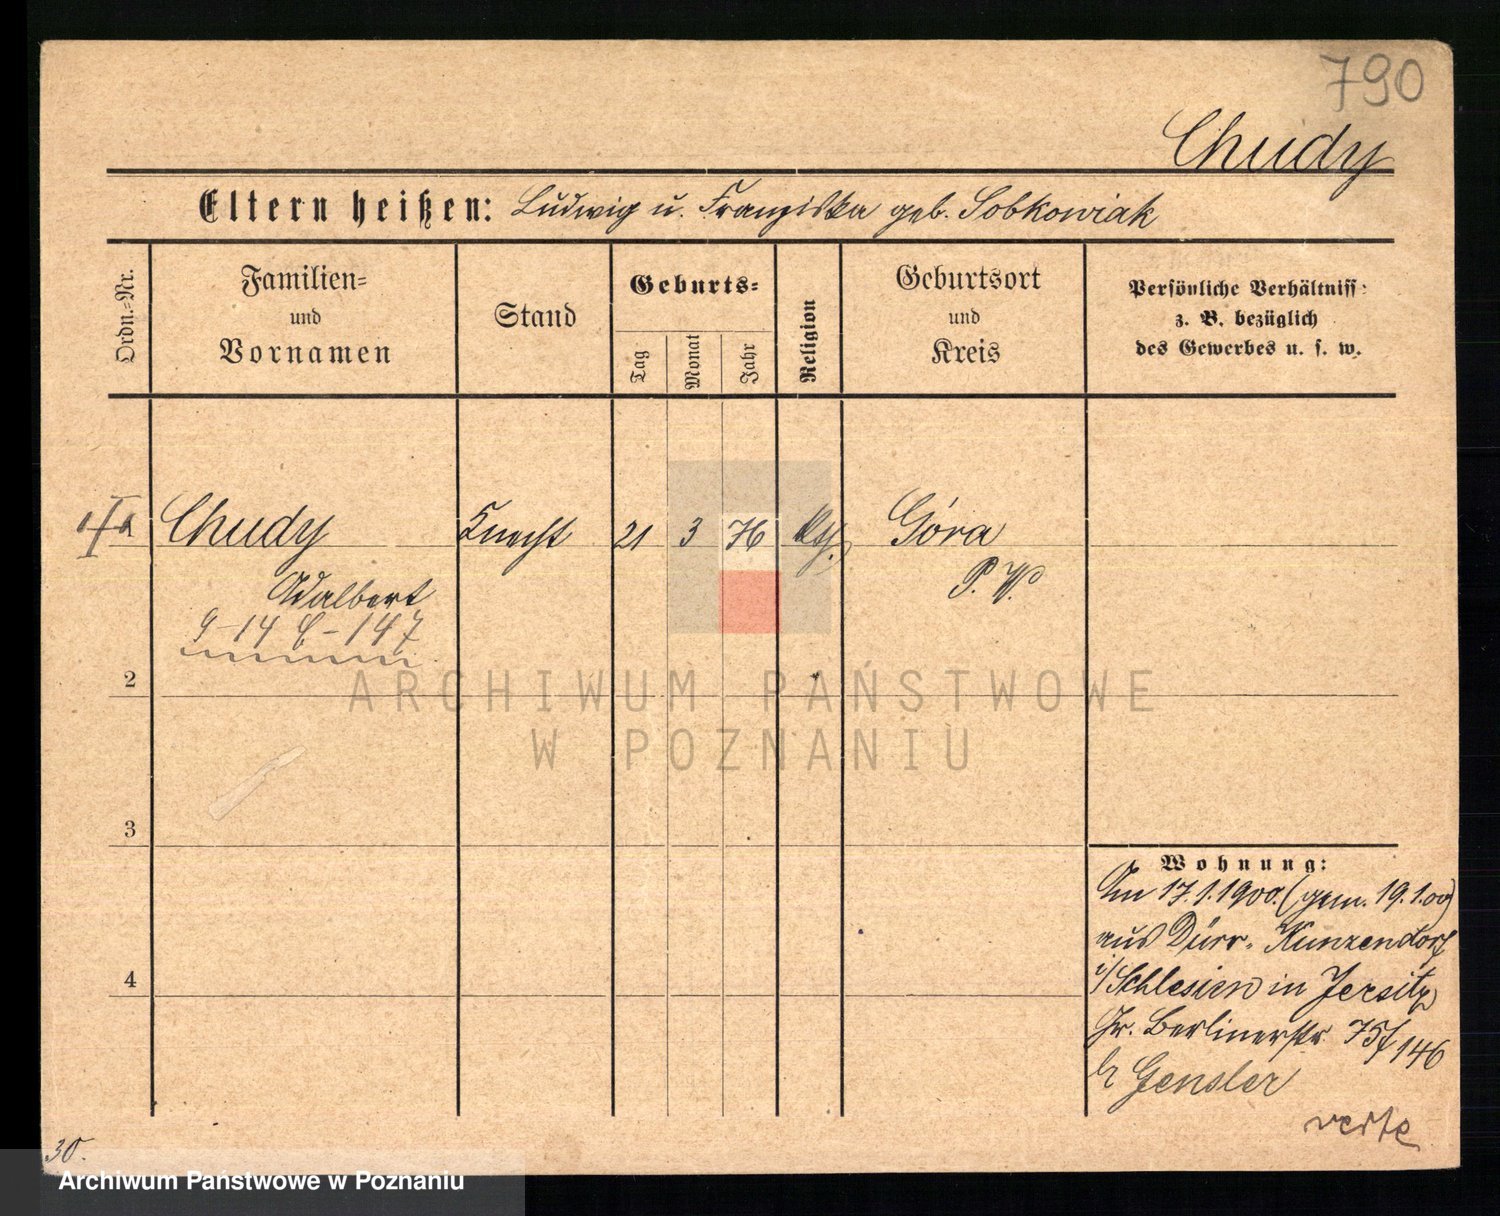 790
Chudy
Eltern heißen: Ludwig u. Franziska geb. Sobkowiak
Ordn.-Nr.
Familien-
und
Vornamen
Stand
Geburts-
Tag
Monat
Jahr
Religion
Geburtsort
und
Kreis
Persönliche Verhältniss
z. B. bezüglich
des Gewerbes u. s. w.
Chudy Knecht 21 3 76 Kth. Góra
Adalbert P. W.
2
3
4
ARCHIWUM PAŃSTWOWE
W POZNANIU
Wohnung:
Am 17.1.1900. (gem. 19.1.00)
aus Dürr-Kunzendorf
i/Schlesien in Jersitz
Gr. Berlinerstr. 75/146
b Gensler
verte
30.
Archiwum Państwowe w Poznaniu